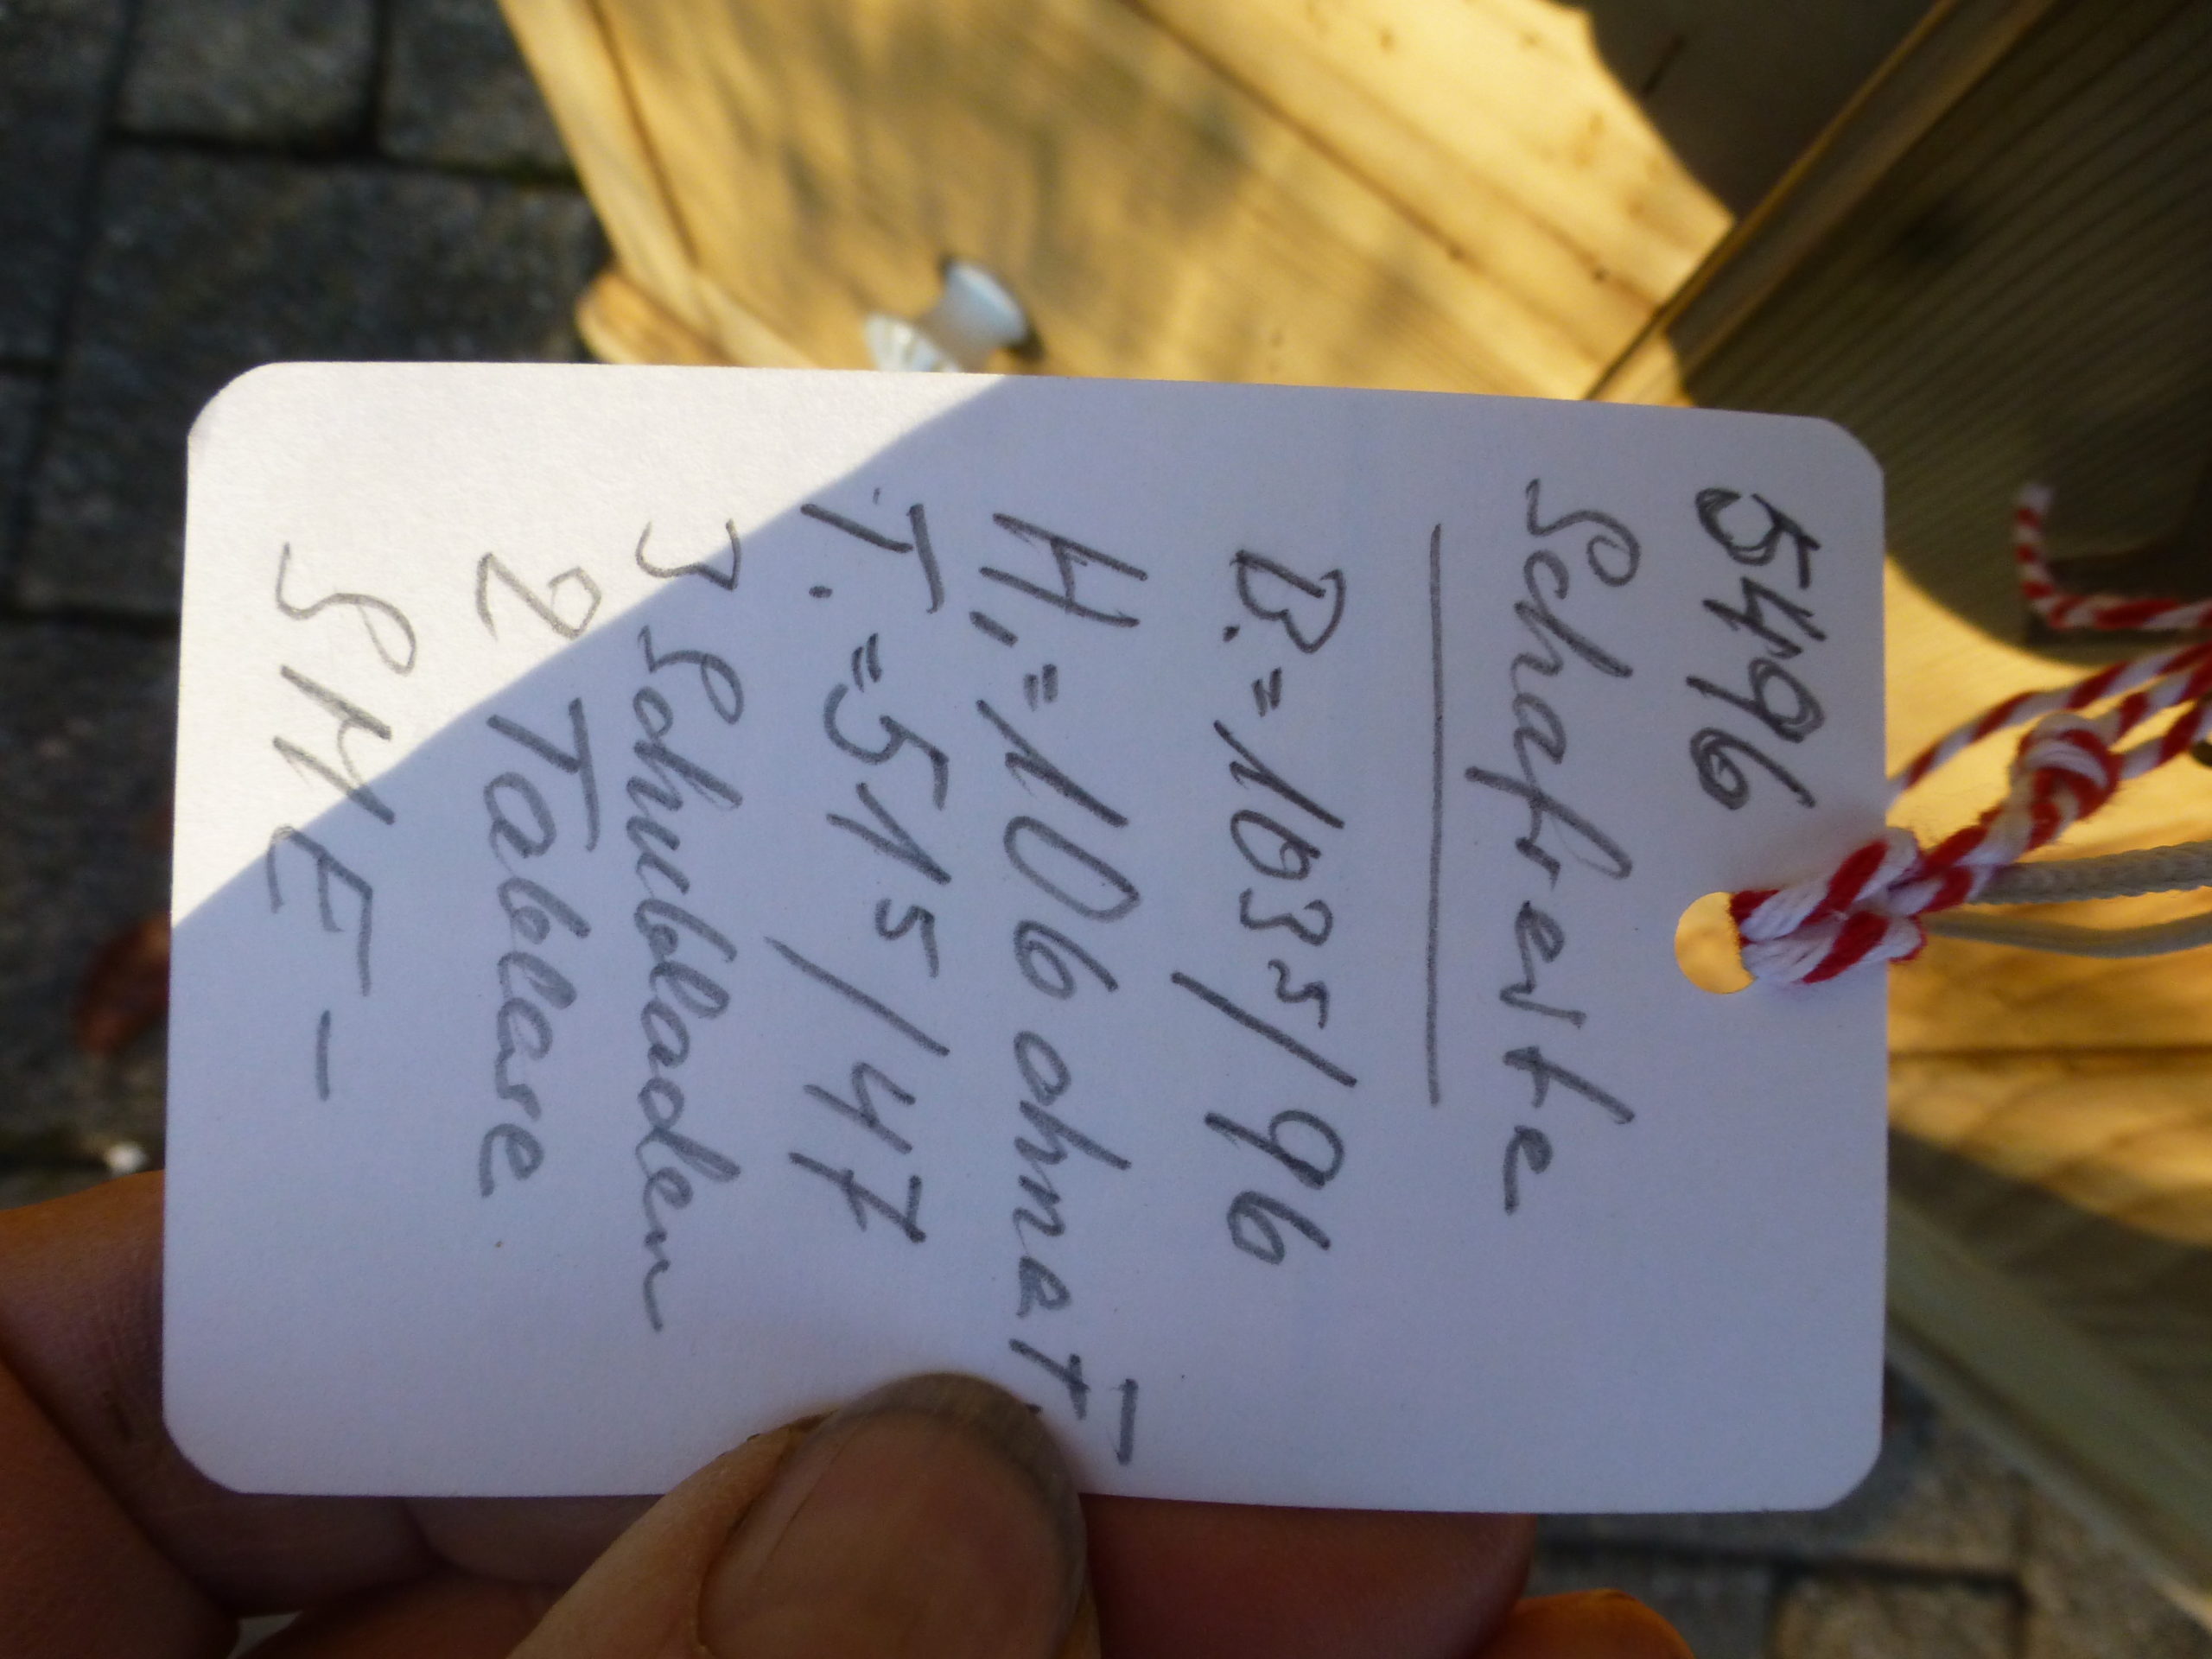 5496
Schafreite
B.=103⁵/96
H.=106 ohne
T.=51⁵/47
3 Schubladen
2 Tablare
SHE-